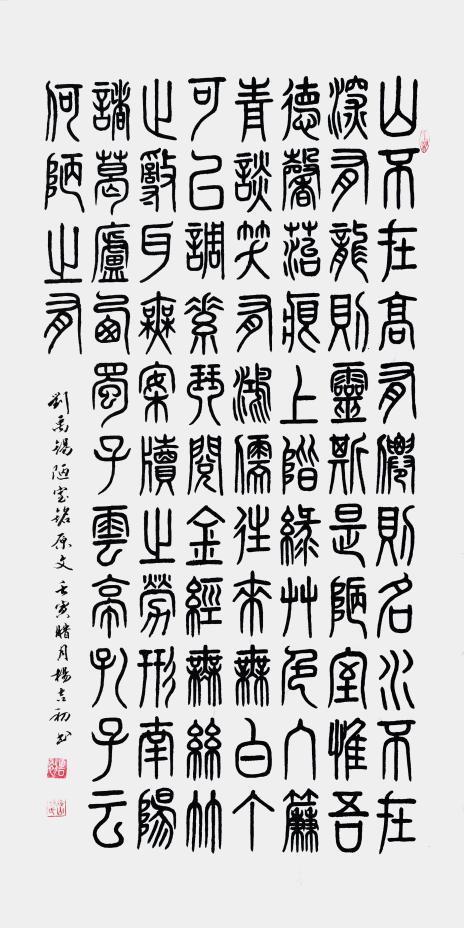 山不在高有僊則名水不在
深有龍則靈斯是陋室惟吾
德馨菭痕上階綠艸色入簾
青談笑有鴻儒往來無白丁
可以調素琴閱金經無絲竹
之亂耳無案牘之勞形南陽
諸葛廬西蜀子雲亭孔子云
何陋之有
劉禹錫陋室銘原文壬寅腊月楊吉初書